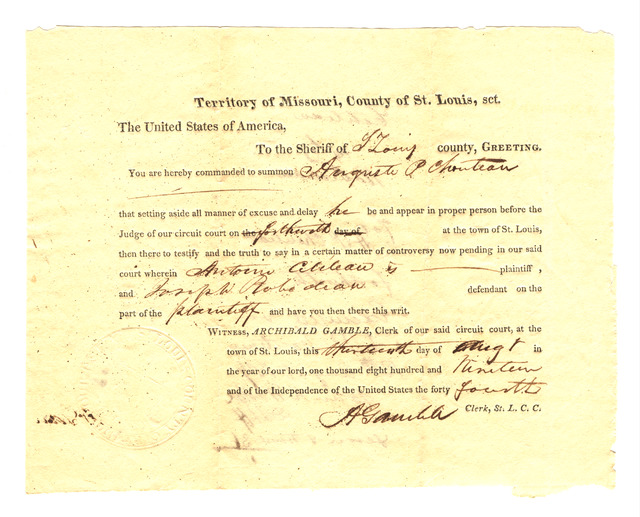 Territory of Missouri, County of St. Louis, sct.
The United States of America,
To the Sheriff of St Louis county, GREETING.
You are hereby commanded to summon Auguste P Chouteau
that setting aside all manner of excuse and delay he be and appear in proper person before the
Judge of our circuit court on the forthwith day of at the town of St. Louis,
then there to testify and the truth to say in a certain matter of controversy now pending in our said
court wherein Antoine is plaintiff ,
and Joseph Robedeau defendant on the
part of the plaintiff and have you then there this writ.
WITNESS, ARCHIBALD GAMBLE, Clerk of our said circuit court, at the
town of St. Louis, this thirteenth day of Augt in
the year of our lord, one thousand eight hundred and Nineteen
and of the Independence of the United States the forty fourth
A Gamble Clerk, St. L. C. C.